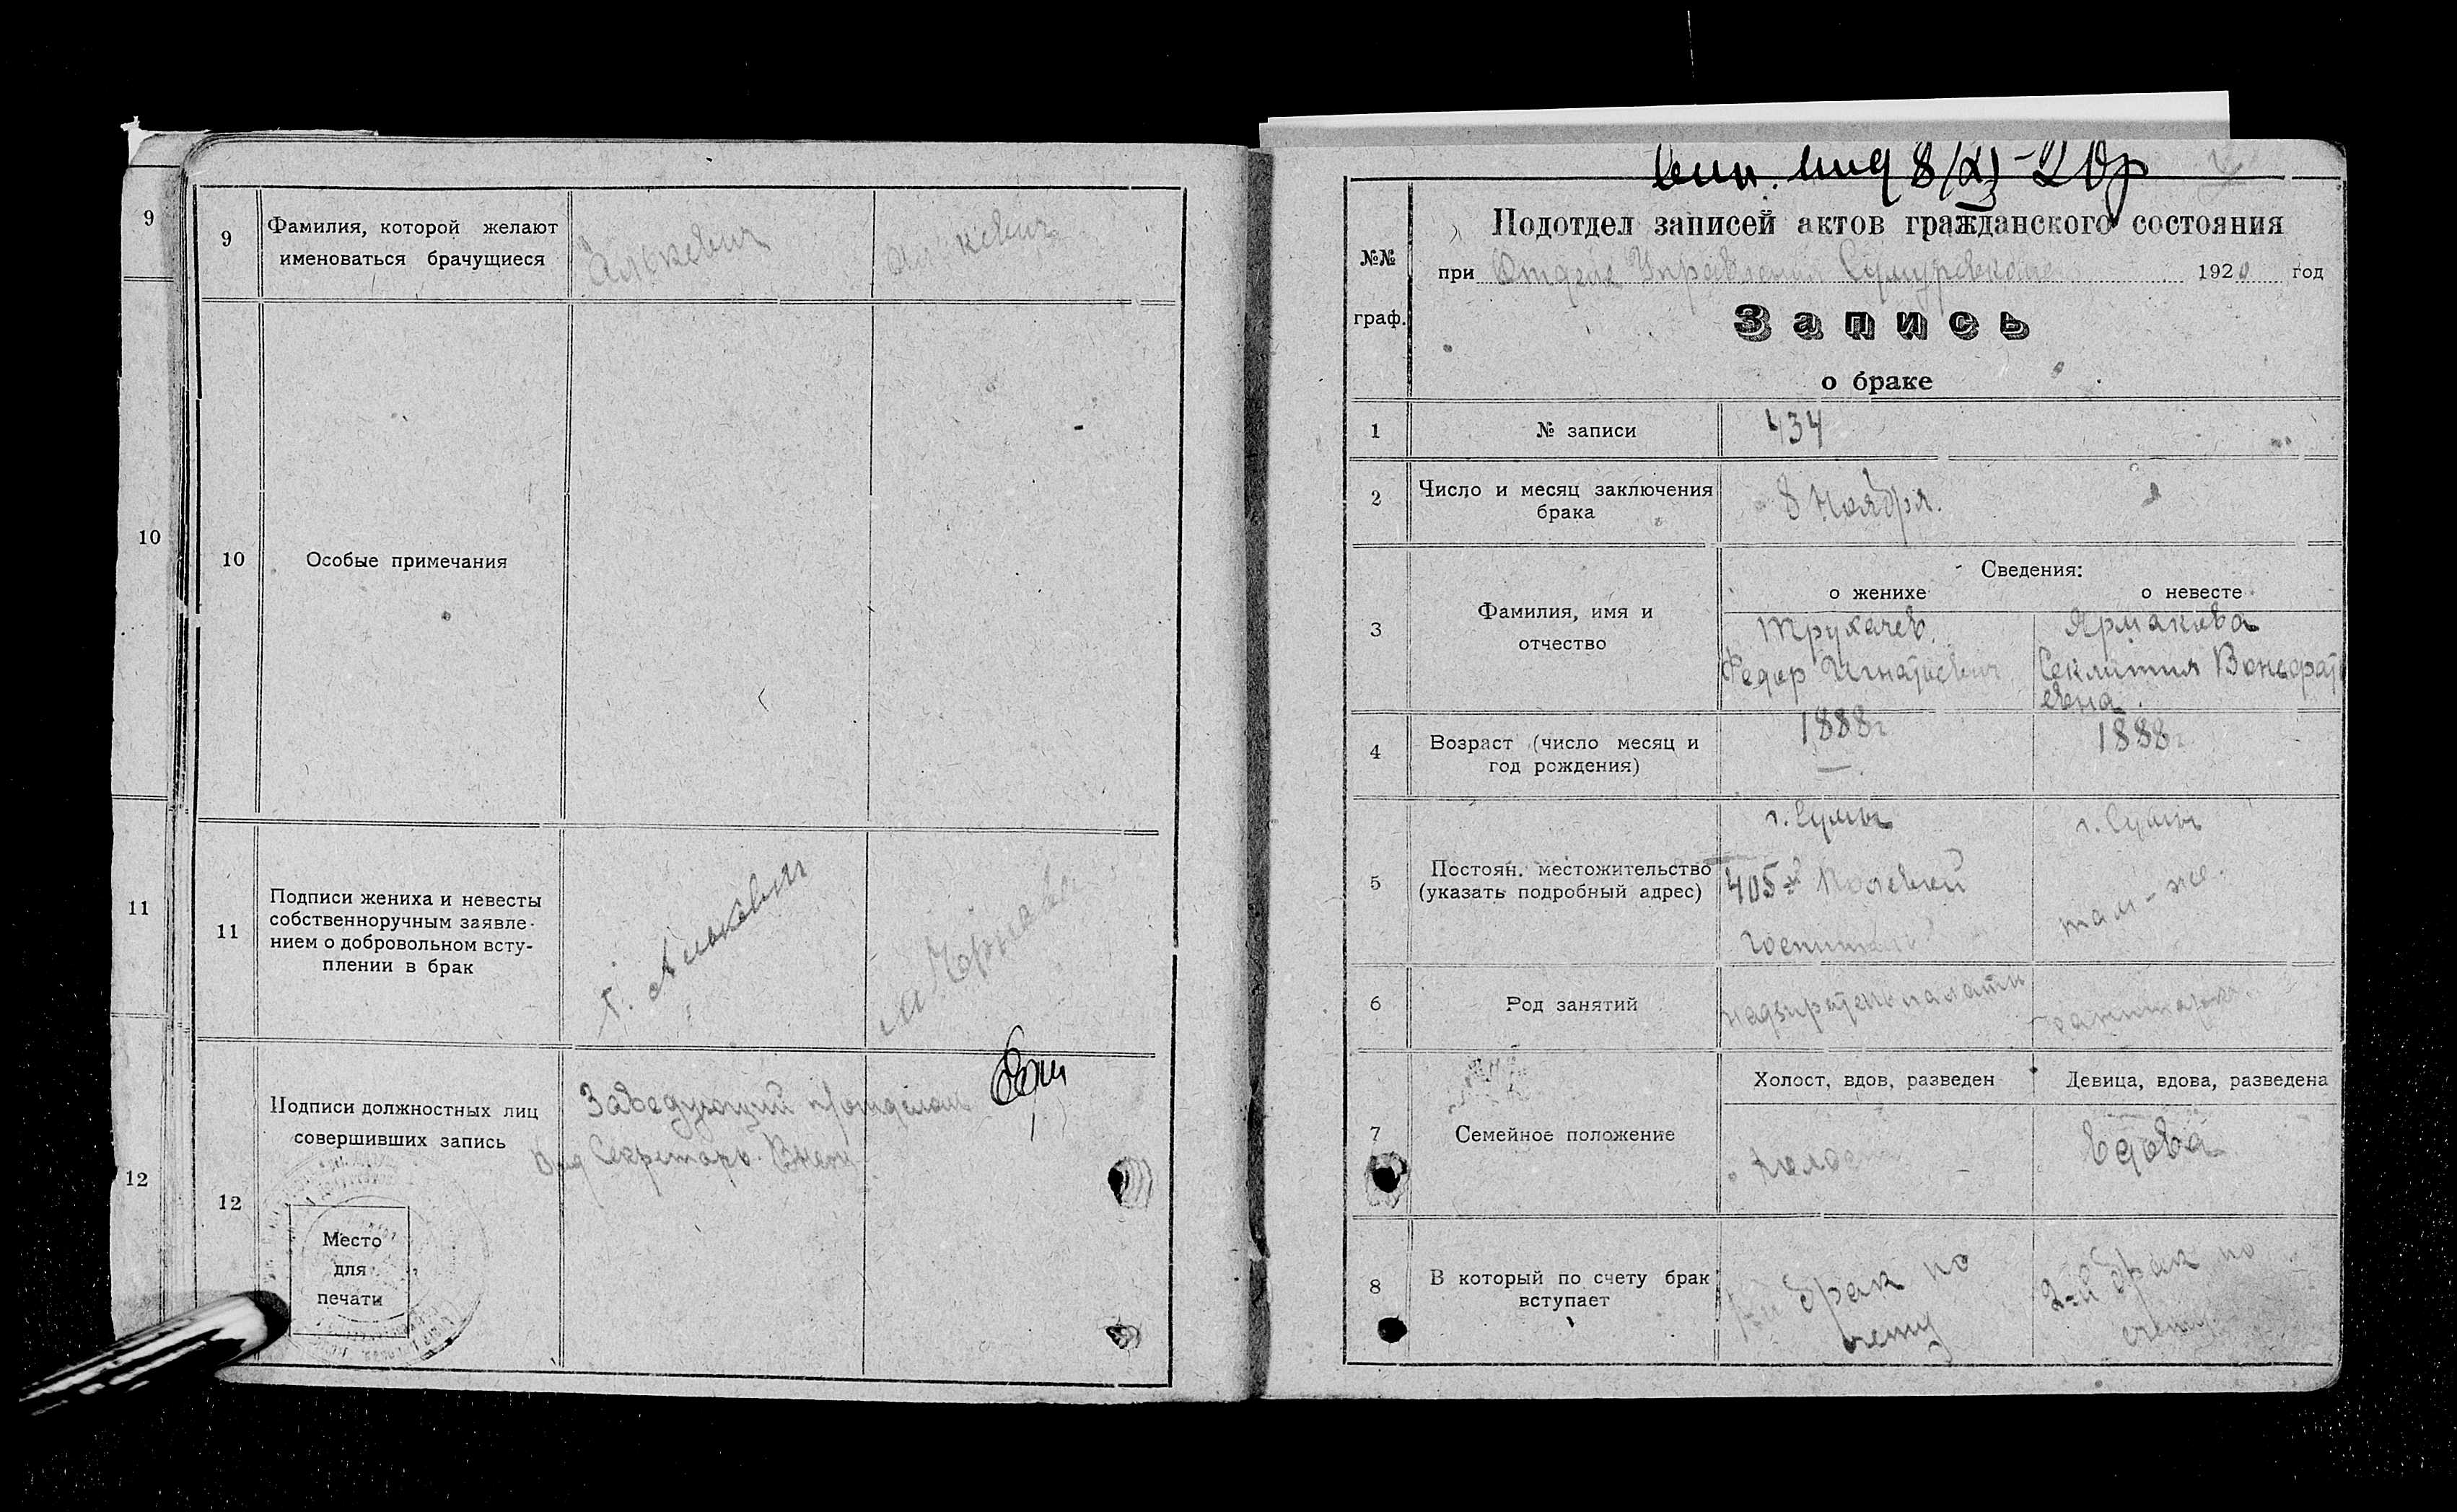 9
10
11
12
9
Фамилия, которой желают
именоваться брачущиеся
Алькевич
Алькевич
10
Особые примечания
11
Подписи жениха и невесты
собственноручным заявле-
нием о добровольном всту-
плении в брак
Алькевич
12
Подписи должностных лиц
совершивших запись
Заведующий п/отделом
Секретарь
Место
для
печати
8/XI-20р
№№
граф.
Подотдел записей актов гражданского состояния
при Отделе Управления 1920 год
Запись
о браке
1
№ записи
434
2
Число и месяц заключения
брака
8 Ноября.
3
Фамилия, имя и
отчество
Сведения:
о женихе
о невесте
Трухачев.
Федор Игнатьевич
Ярмакова
Секлития
евна
4
Возраст (число месяц и
год рождения)
1888г
1888г
5
Постоян. местожительство
(указать подробный адрес)
г. Сумы
405й Полевой
госпиталь
г. Сумы
там-же.
6
Род занятий
надзиратель палаты
санитарка
7
Семейное положение
Холост, вдов, разведен
Девица, вдова, разведена
холост
вдова
8
В который по счету брак
вступает
брак по
счету
2-й брак по
счету